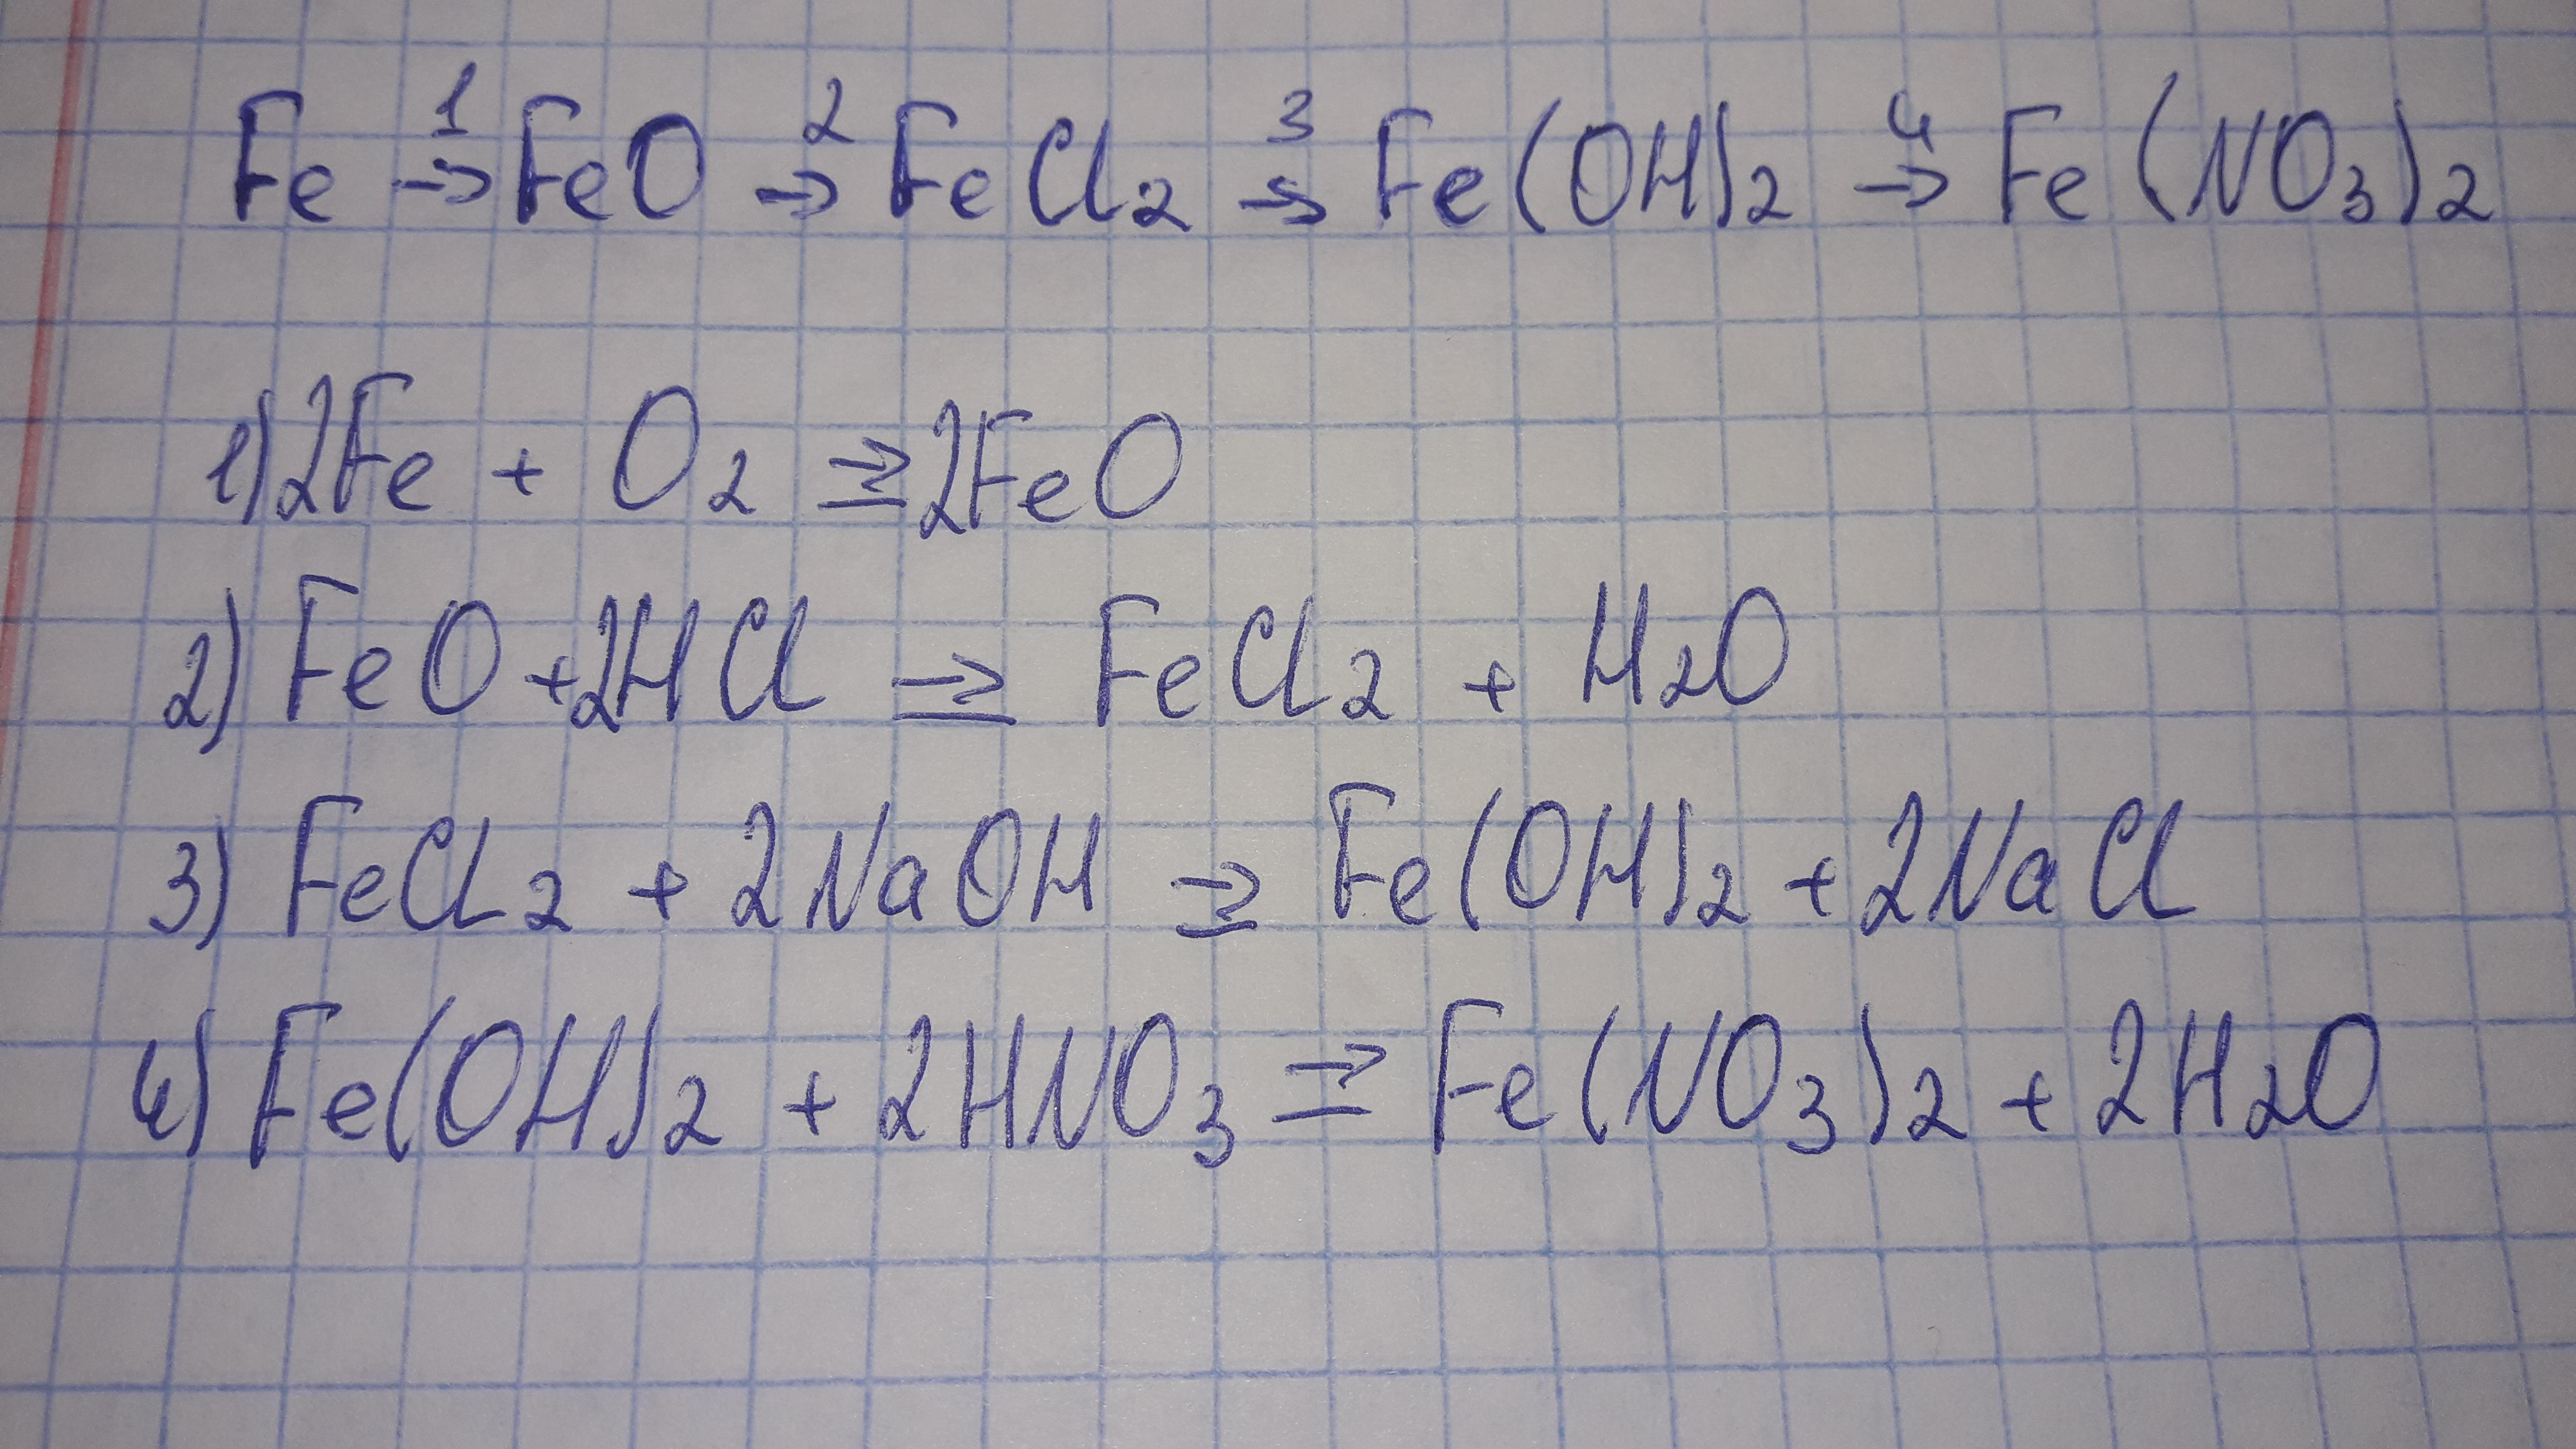 Fe →¹ FeO →² FeCl₂ →³ Fe(OH)₂ →⁴ Fe(NO₃)₂
1) 2Fe + O₂ ⇒ 2FeO
2) FeO + 2HCl ⇒ FeCl₂ + H₂O
3) FeCl₂ + 2NaOH ⇒ Fe(OH)₂ + 2NaCl
4) Fe(OH)₂ + 2HNO₃ ⇒ Fe(NO₃)₂ + 2H₂O